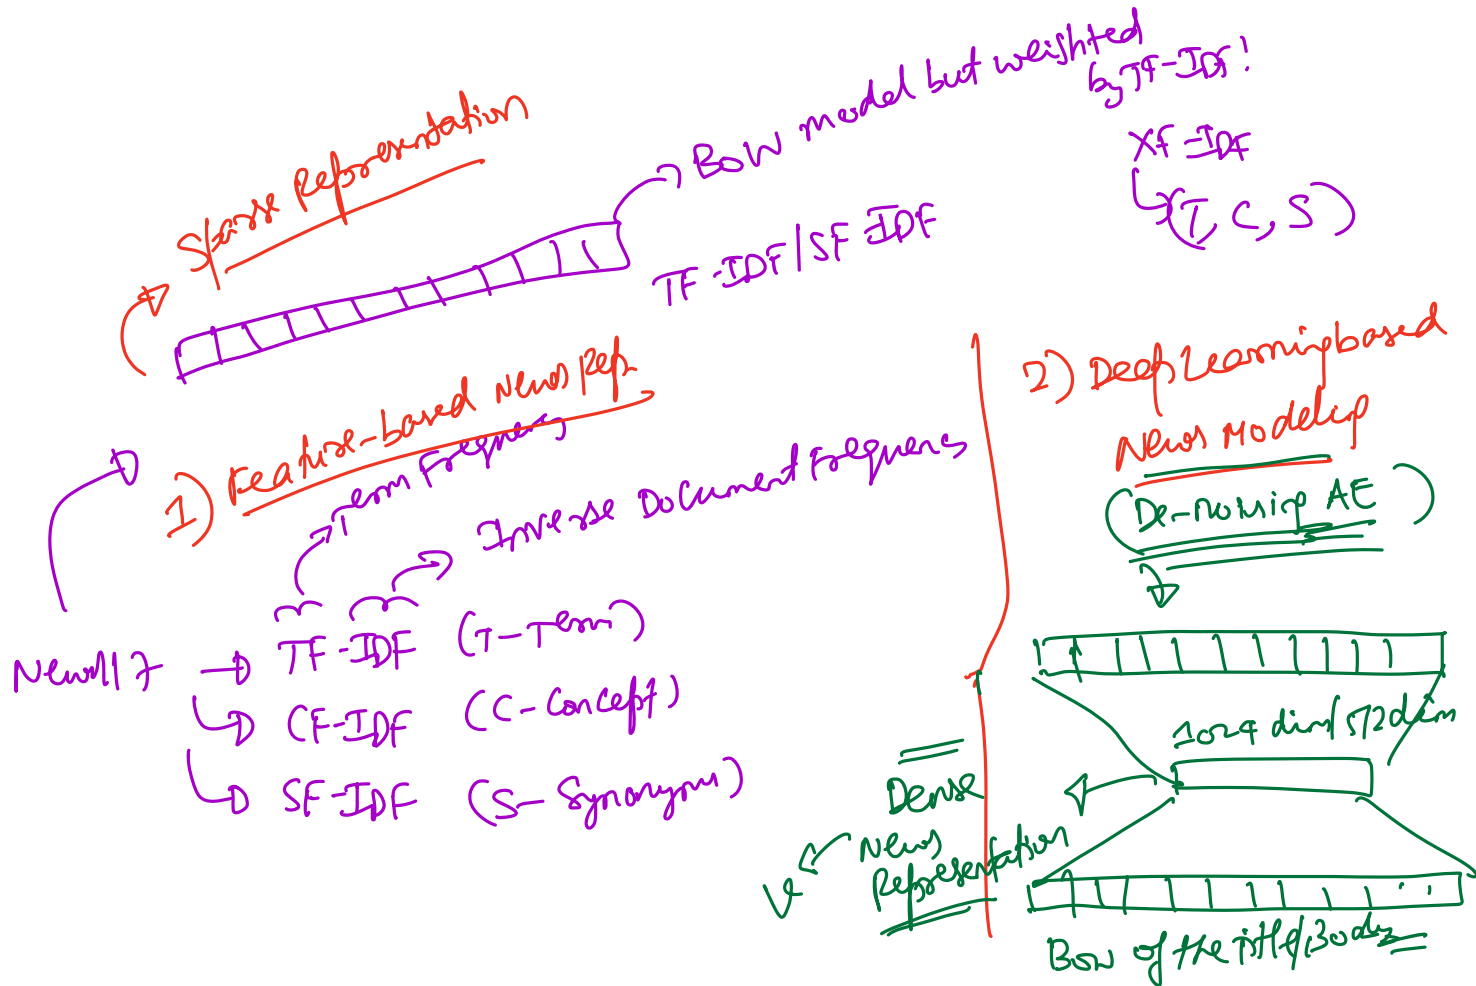 Sparse Representation
BOW model but weighted
by TF-IDF!
XF-IDF
(T, C, S)
TF-IDF/SF-IDF
1) Feature-based News Rep.
Term Frequency
Inverse Document Frequency
TF-IDF (T-Term)
CF-IDF (C-Concept)
SF-IDF (S-Synonym)
2) Deep Learning based
News Modeling
(De-noising AE)
1024 dim/512 dim
Dense
News
Representation
BOW of the title/Body